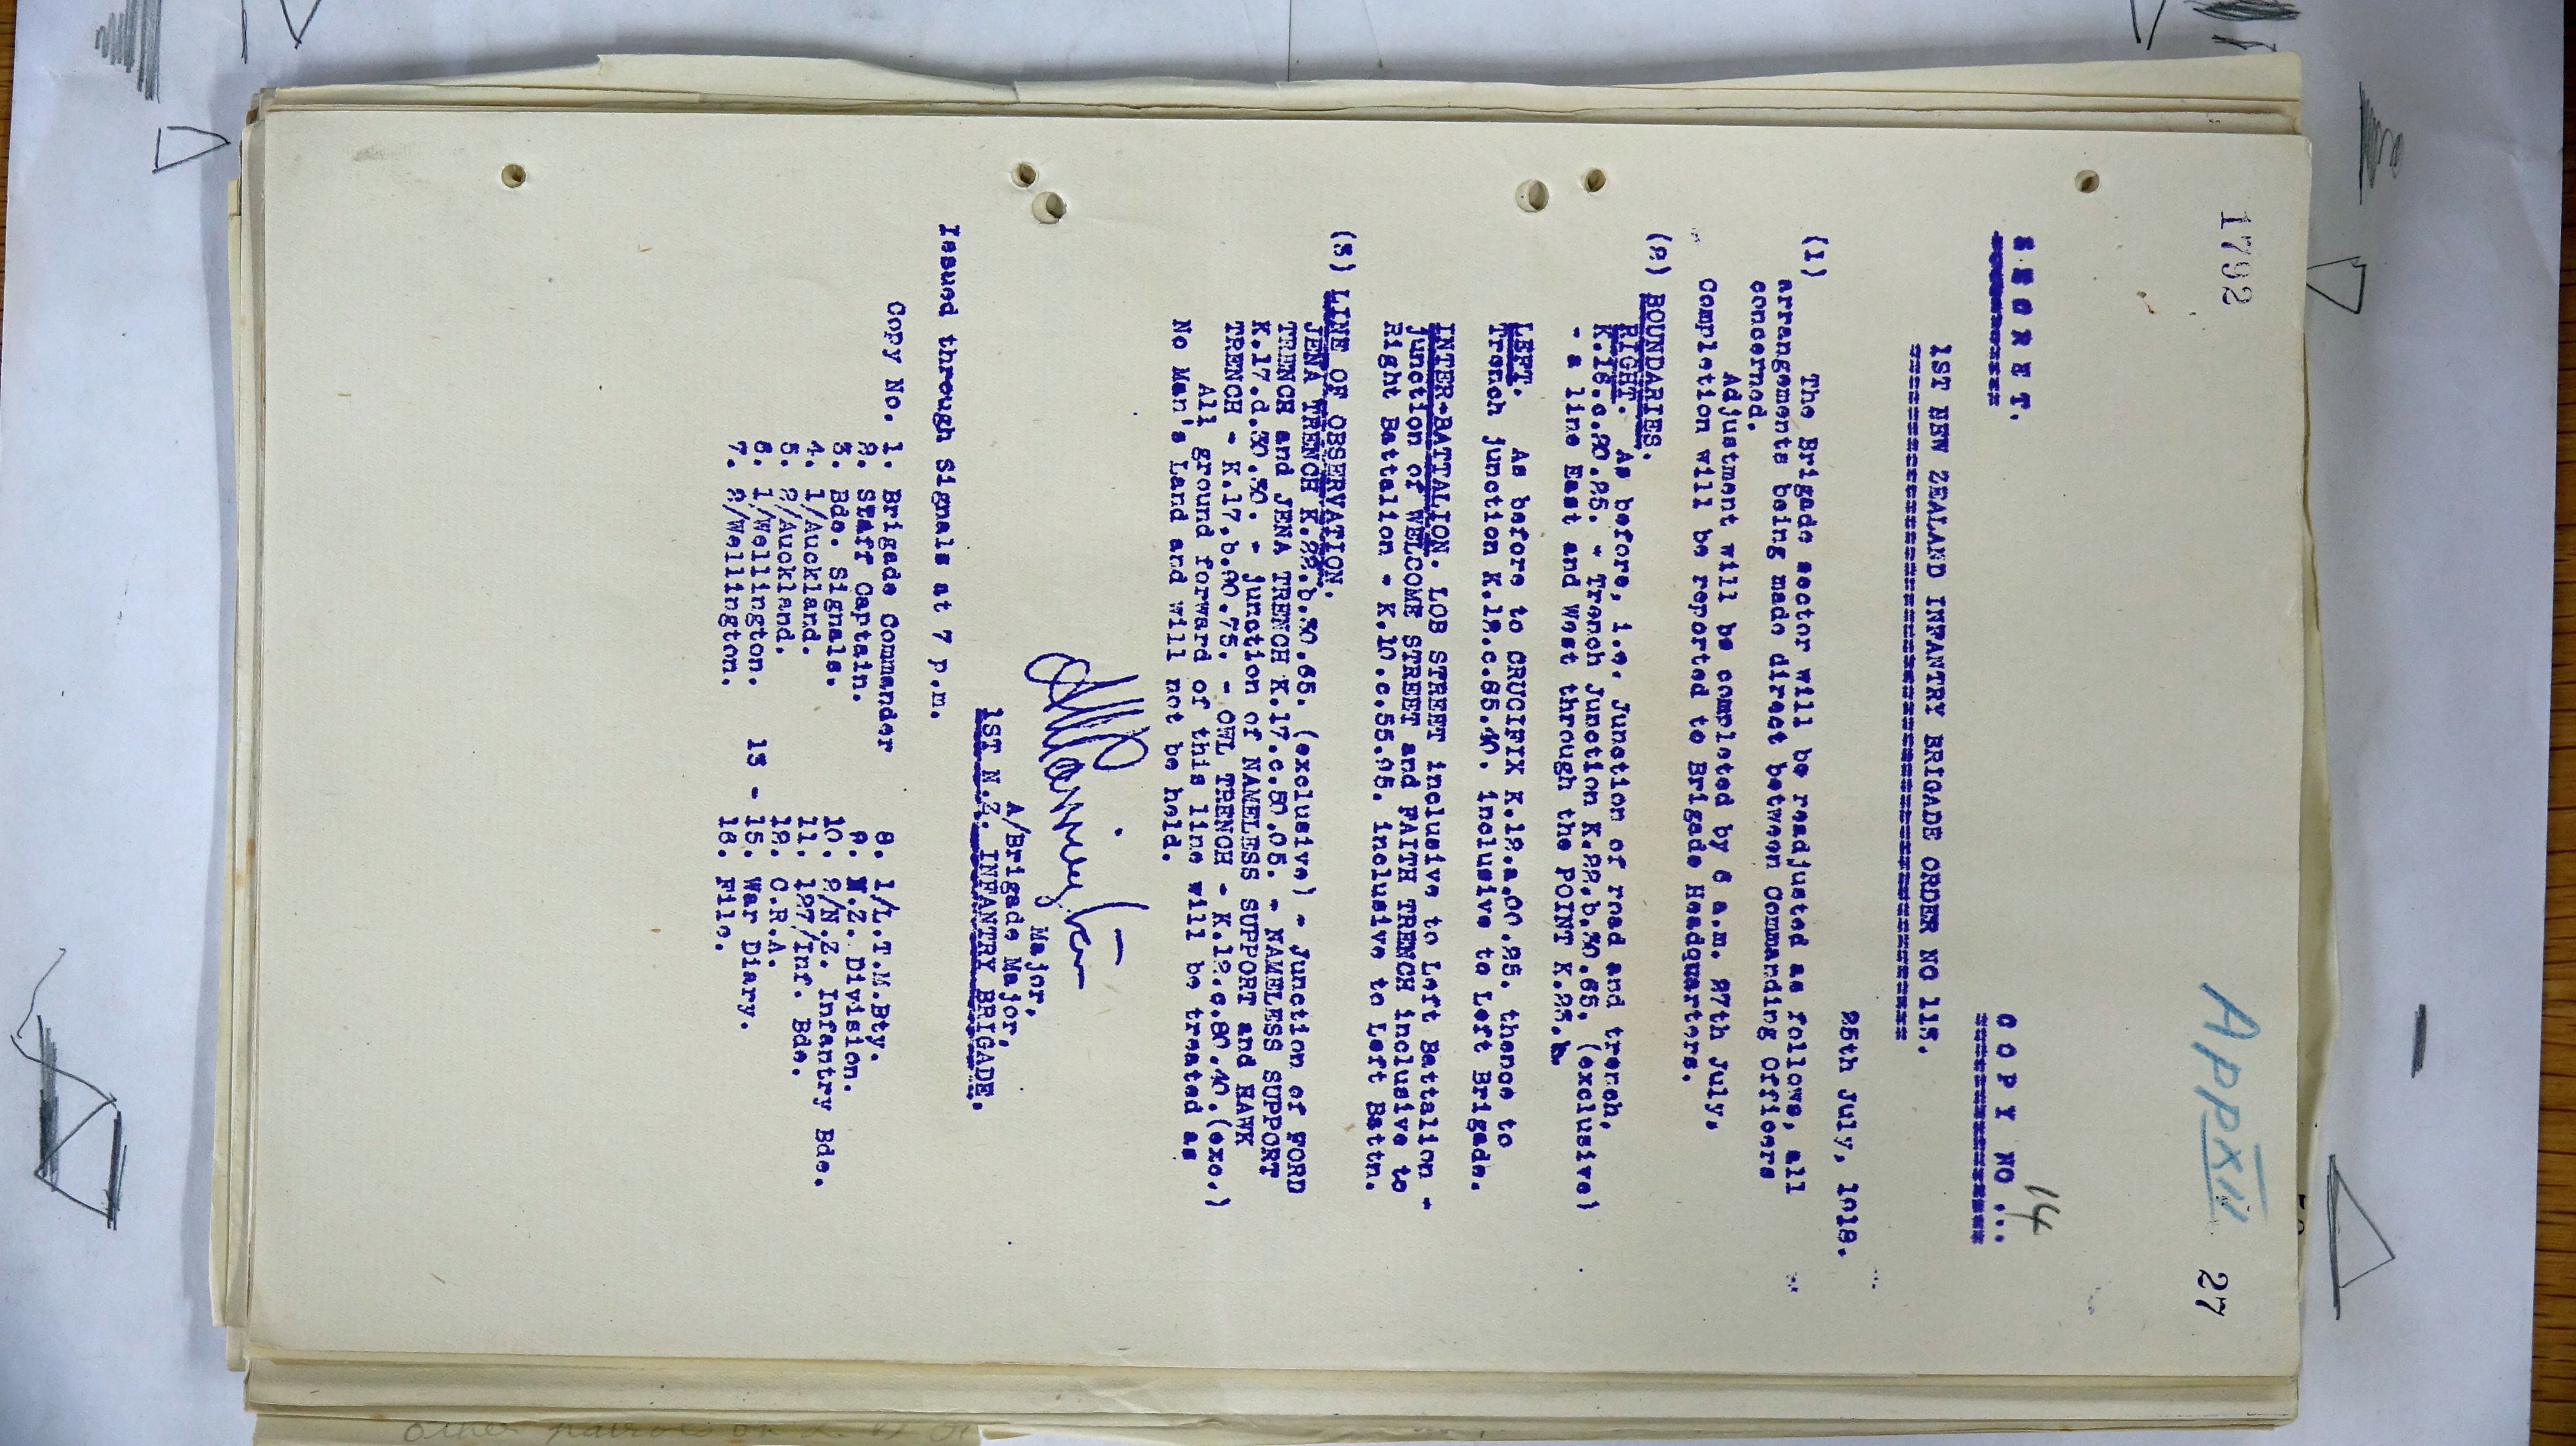 1792
App XII 27
S E C R E T.
C O P Y NO ... 14
1ST NEW ZEALAND INFANTRY BRIGADE ORDER NO 113.
25th July, 1918.
(1) The Brigade sector will be readjusted as follows, all
arrangements being made direct between Commanding Officers
concerned.
Adjustment will be completed by 6 a.m. 27th July,
Completion will be reported to Brigade Headquarters.
(2) BOUNDARIES.
RIGHT. As before, i.e. Junction of road and trench,
K.18.c.20.25. - Trench Junction K.22.b.30.65. (exclusive)
- a line East and West through the POINT K.23.b.
LEFT. As before to CRUCIFIX K.12.a.00.25. thence to
Trench junction K.12.c.85.40. inclusive to Left Brigade.
INTER-BATTALION. LOB STREET inclusive to Left Battalion -
junction of WELCOME STREET and FAITH TRENCH inclusive to
Right Battalion - K.10.c.55.05. inclusive to Left Battn.
(3) LINE OF OBSERVATION.
JENA TRENCH K.22.b.30.65. (exclusive) - Junction of FORD
TRENCH and JENA TRENCH K.17.c.80.05. - NAMELESS SUPPORT
K.17.d.30.30. - junction of NAMELESS SUPPORT and HAWK
TRENCH - K.17.b.00.75. - OWL TRENCH - K.12.c.80.40.(exc.)
All ground forward of this line will be treated as
No Man's Land and will not be held.
Major,
A/Brigade Major,
1ST N.Z. INFANTRY BRIGADE.
Issued through Signals at 7 p.m.
Copy No. 1. Brigade Commander 8. 1/L.T.M.Bty.
2. Staff Captain. 9. N.Z. Division.
3. Bde. Signals. 10. 2/N.Z. Infantry Bde.
4. 1/Auckland. 11. 127/Inf. Bde.
5. 2/Auckland. 12. C.R.A.
6. 1/Wellington. 13 - 15. War Diary.
7. 2/Wellington. 16. File.
Other patrols on